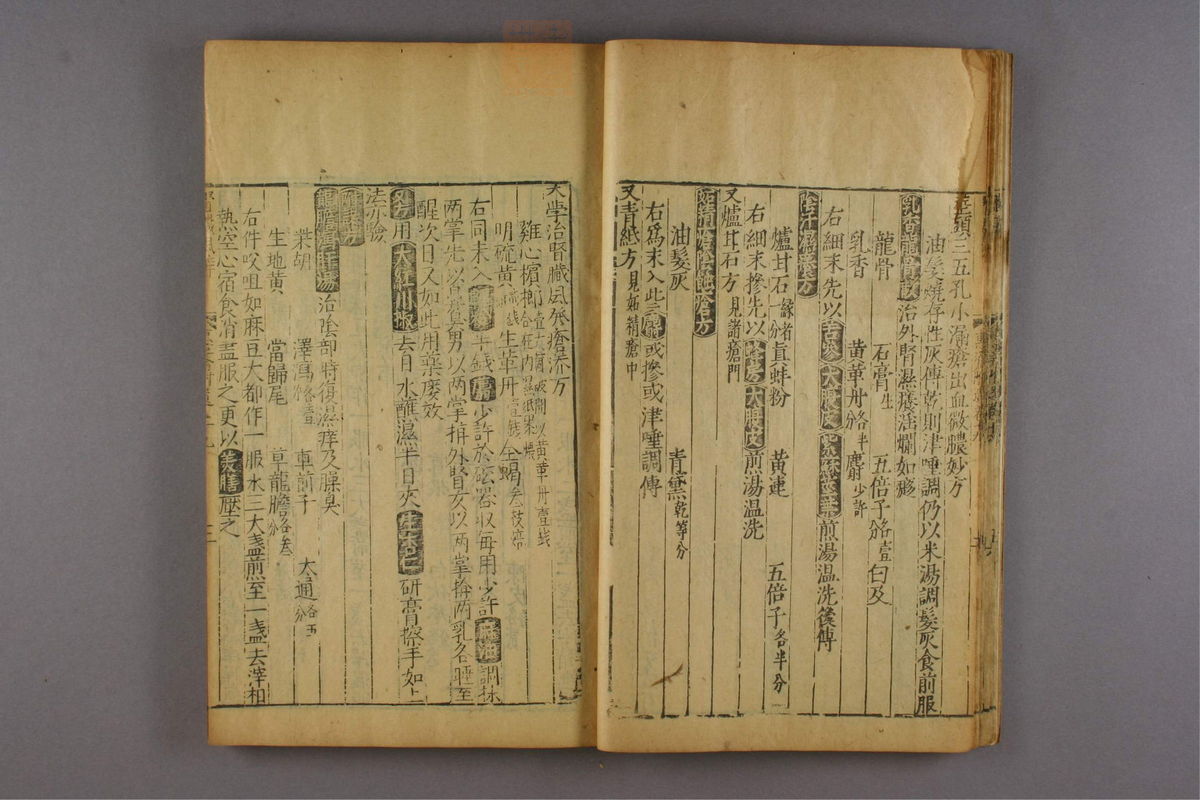 莖頭三五孔小漏瘡出血微膿妙方
油髮燒存性灰傅乾則津唾調仍以米湯調髮灰食前服
乳香龍骨散治外腎濕癢淫爛如移
龍骨 石膏生 五倍子各壹 白及
乳香 黃華丹各半 麝少許
右細末先以苦參大腹皮紫蘇莖葉煎湯温洗後傅
陰汗濕癢方
爐甘石一分 真蚌粉 黃連 五倍子各半分
右細末摻先以蜂房大腹皮煎湯温洗
又爐甘石方見諸瘡門
妬精瘡陰蝕瘡方
油髮灰 青黛乾等分
右為末入些麝或摻或津唾調傅
又青紙方見妬精瘡中
大學治腎臟風發瘡添方
雞心檳榔 破開以黃華丹壹錢
明硫黃 生華丹壹錢 全蝎
右同末入 半錢麝少許於磁器收每用少許麻油調抹
兩掌先以 男以兩掌揞外腎女以兩掌揞兩乳各睡至
醒次日又如此用藥屢效
又方用大紅川椒去目水蘸濕半日夾生杏仁研膏擦手如上
法亦驗
龍膽瀉肝湯治陰部時復濕痒及臊臭
柴胡 澤瀉 車前子 木通各五分
生地黃 當歸尾 草龍膽各叁分
右件㕮咀如麻豆大都作一服水三大盞煎至一盞去滓相
熱空心宿食消盡服之更以美膳壓之